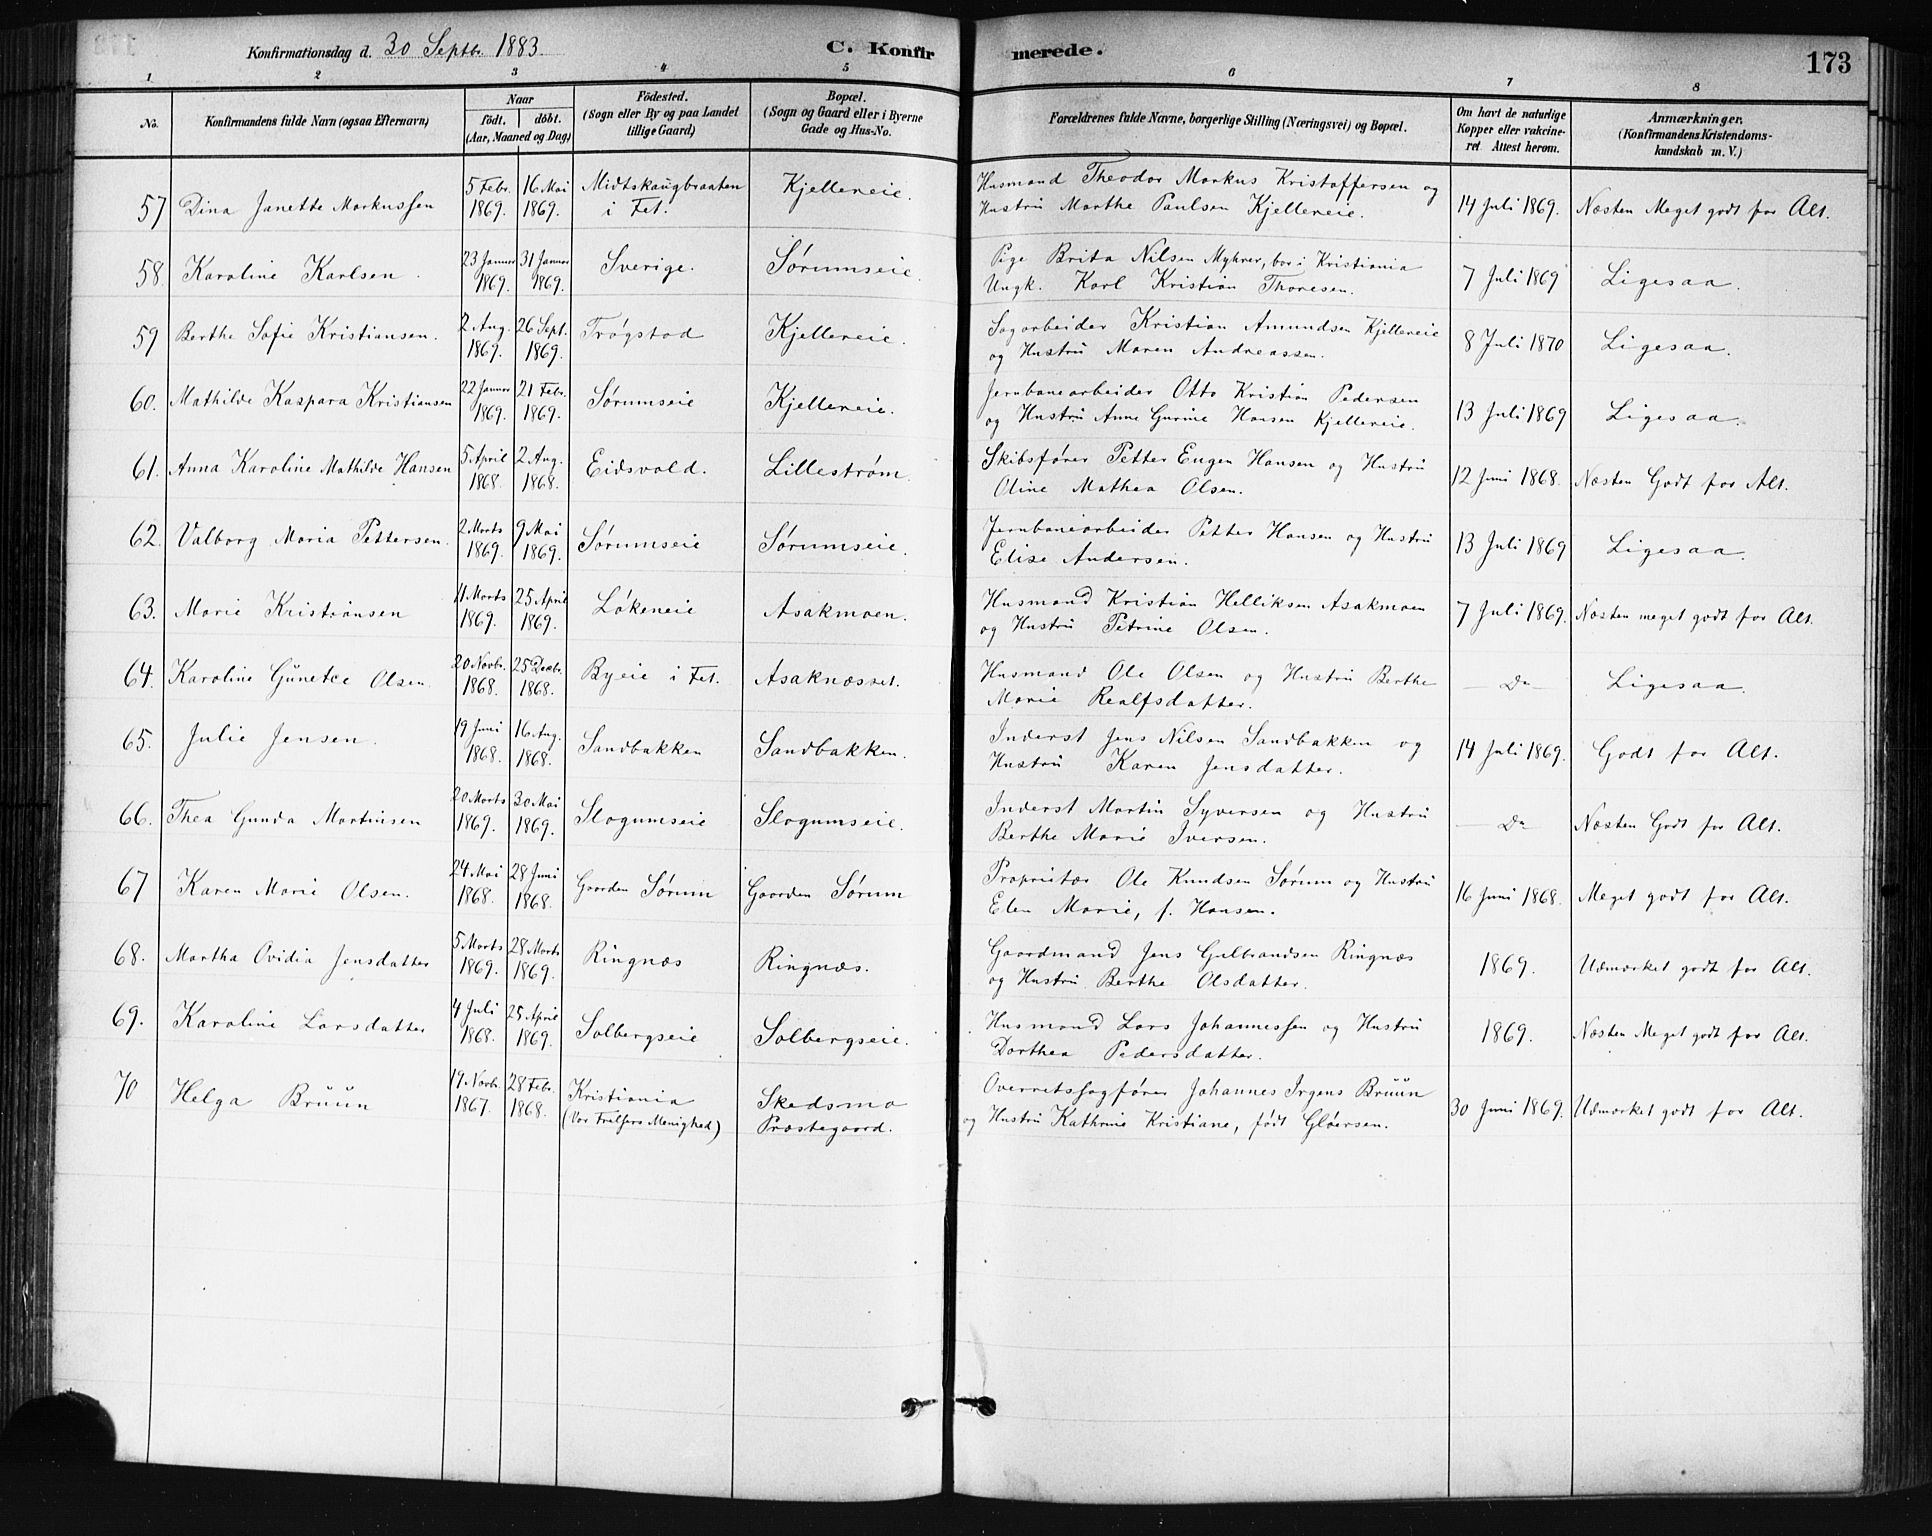 Konfirmationsdag d. 30 Septbr. 1883. C. Konfirmerede. 173
1 2 3 4 5 6 7 8
No. Konfirmandens fulde Navn (ogsaa Efternavn) Naar Födt. döbt. (Aar, Maaned og Dag) Födested. (Sogn eller By og paa Landet tillige Gaard) Bopæl. (Sogn og Gaard eller i Byerne Gade og Hus-No. Forældrenes fulde Navne, borgerlige Stilling (Næringsvei) og Bopæl. Om havt de naturlige Kopper eller vakcineret. Attest herom. Anmærkninger. (Konfirmandens Kristendomskundskab m. V.)
57 Dina Janette Markussen 5 Febr. 1869. 16 Mai 1869. Midtskaugbraaten i Fet. Kjellereie. Husmand Theodor Markus Kristoffersen og Hustru Marthe Paulsen Kjellereie. 14 Juli 1869. Næsten Meget godt for Alt.
58. Karoline Karlsen. 23 Januar 1869. 31 Januar 1869. Sverige. Sørumseie. Pige Brita Nilsen Myhrer, bor i Kristiania Ungk. Karl Kristian Thoresen. 7 Juli 1869 Ligesaa.
59 Berthe Sofie Kristiansen. 2 Aug. 1869. 26 Sept. 1869. Trøgstad Kjellereie. Sagarbeider Kristian Amundsen Kjellereie og Hustru Maren Andreassen. 8 Juli 1870 Ligesaa.
60. Mathilde Kaspara Kristiansen 22 Januar 1869. 21 Febr. 1869. Sørumseie Kjellereie. Jernbanearbeider Otto Kristian Pedersen og Hustru Anne Gurine Hansen Kjellereie. 13 Juli 1869 Ligesaa.
61. Anna Karoline Mathilde Hansen 5 April 1868. 2 Aug. 1868. Eidsvold. Lillestrøm. Skibsfører Petter Eugen Hansen og Hustru Oline Mathea Olsen. 12 Juni 1868. Næsten Godt for Alt.
62. Valborg Maria Pettersen. 2 Marts 1869. 9 Mai 1869. Sørumseie Sørumseie. Jernbanearbeider Petter Hansen og Hustru Elise Andersen. 13 Juli 1869 Ligesaa.
63. Marie Kristiansen 11 Marts 1869. 25 April 1869. Løkeneie Asakmoen. Husmand Kristian Helliksen Asakmoen og Hustru Petrine Olsen. 7 Juli 1869. Næsten meget godt for Alt.
64. Karoline Gunetee Olsen. 20 Novbr. 1868. 25 Decbr. 1868. Byeie i Fet. Asaknæsset. Husmand Ole Olsen og Hustru Berthe Marie Realfsdatter. — Do — Ligesaa.
65. Julie Jensen. 19 Juni 1868. 16 Aug. 1868. Sandbakken Sandbakken. Inderst Jens Nilsen Sandbakken og Hustru Karen Jensdatter. 14 Juli 1869. Godt for Alt.
66. Thea Gunda Martinsen 20 Marts 1869. 30 Mai 1869. Slogumseie Slogumseie. Inderst Martin Syversen og Hustru Berthe Marie Iversen. — Do — Næsten Godt for Alt.
67 Karen Marie Olsen. 24 Mai 1868. 28 Juni 1868. Gaarden Sørum Gaarden Sørum Proprietær Ole Knudsen Sørum og Hustru Elen Marie, f. Hansen. 16 Juni 1868. Meget godt for Alt.
68. Martha Ovidia Jensdatter 5 Marts 1869. 28 Marts 1869. Ringnæs Ringnæs. Gaardmand Jens Gulbrandsen Ringnæs og Hustru Berthe Olsdatter. 1869. Udmærket godt for Alt.
69. Karoline Larsdatter 4 Juli 1868. 25 April 1869. Solbergseie Solbergseie. Husmand Lars Johannessen og Hustru Dorthea Pedersdatter. 1869. Næsten Meget godt for Alt.
70 Helga Bruun 19 Novbr. 1867. 28 Febr. 1868. Kristiania (Vor Frelsers Menighed) Skedsmo Præstegaard. Overretssagfører Johannes Irgens Bruun og Hustru Kathrine Kristiane, født Gløersen. 30 Juni 1869. Udmærket godt for Alt.